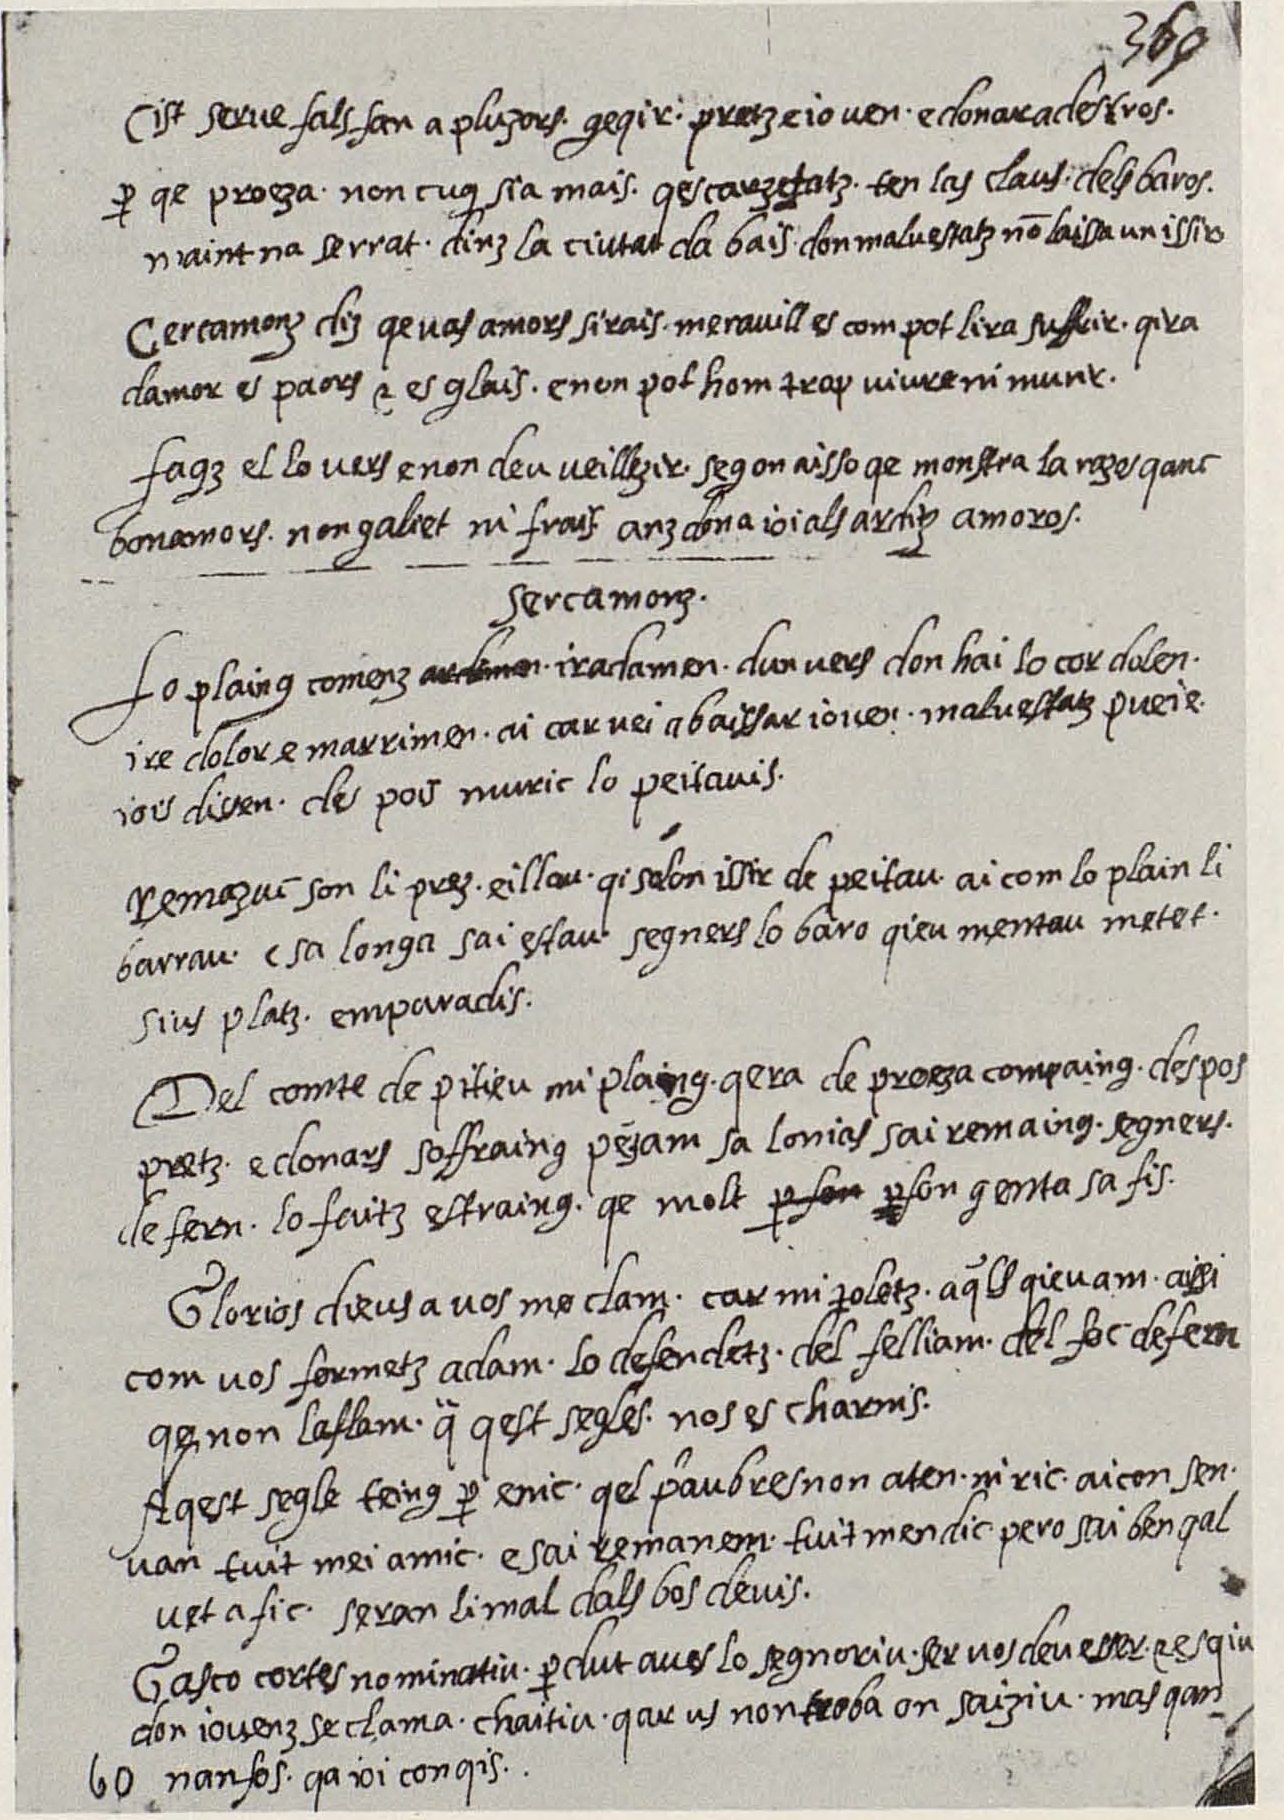 369
Cist serue fals fan a pluzors. geqir. pretz e iouen. e donar ad estros.
p̱ qe proeza. non cuq sia mais. qescarzetatz. ten las claus. dels baros.
maint na serrat. dinz la ciutat da bais. don maluestatz nō laissa un issir
Cercamonz diz qe uas amors sirais. merauill es com pot lira suffrir. qira
damor es paors ⁊ es glais. e non pot hom trap uiure ni murir.
Faqz el lo uers e non deu ueillezir. segon aisso qe monstra la razos qanc
bonamors. non galiet ni frais anz dona ioi als arditz amoros.
Sercamonz.
Lo plaing comenz iradamen. dun uers don hai lo cor dolen.
ire dolor e marrimen. ai car uei abaissar iouen. maluestatz pueie.
iois dissen. des pois muric lo peitauis.
Remazut son li prez. eillau. qi solon issir de peitau. ai com lo plain li
barrau. e sa longa sai estau. segners lo baro qieu mentau metet.
sius platz. emparadis.
Del comte de pitieu mi plaing. qera de proeza compaing. despos
pretz. e donars soffraing pezam sa lonias sai remaing. segners.
defern. lo faitz estraing. qe molt p̱ son genta sa fis.
Glorios dieus a uos me clam. car mi toletz. aqls qieu am. aissi
com uos formetz adam. lo defendetz. del felliam. del foc defern
qe non laflam. q̈ qest segles. nos es charnis.
Aqest segle teing p̱ enic. qel paubres non aten. ni ric. ai con sen.
uan tuit mei amic. e sai remanem. tuit mendic. pero sai ben qal
uet a fic. seran li mal dals bos deuis.
Gasco cortes nominatiu. p̱dut aues lo segnoriu. fer uos deu esser. ⁊ esqiu
don iouenz se clama. chaitiu. qar us non troba on saiziu. mas qan
60 nanfos. qa ioi conqis.